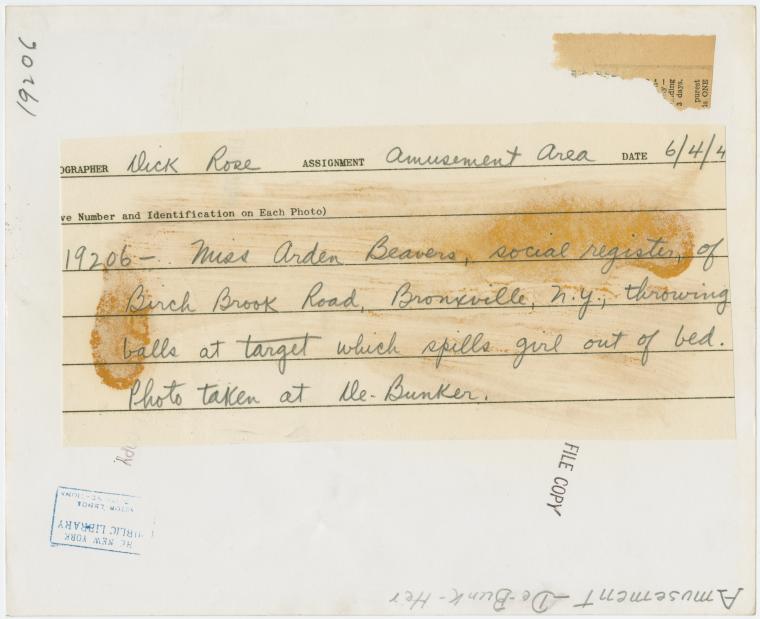 19206
ding
3 days.
purest
is ONE
OGRAPHER Dick Rose ASSIGNMENT Amusement Area DATE 6/4/4
ve Number and Identification on Each Photo)
19206- Miss Arden Beavers, social register, of
Birch Brook Road, Bronxville, N.Y., throwing
balls at target which spills girl out of bed.
Photo taken at De-Bunker.
OPY
FILE COPY
HE NEW YORK
PUBLIC LIBRARY
Amusement-De-Bunk-Her